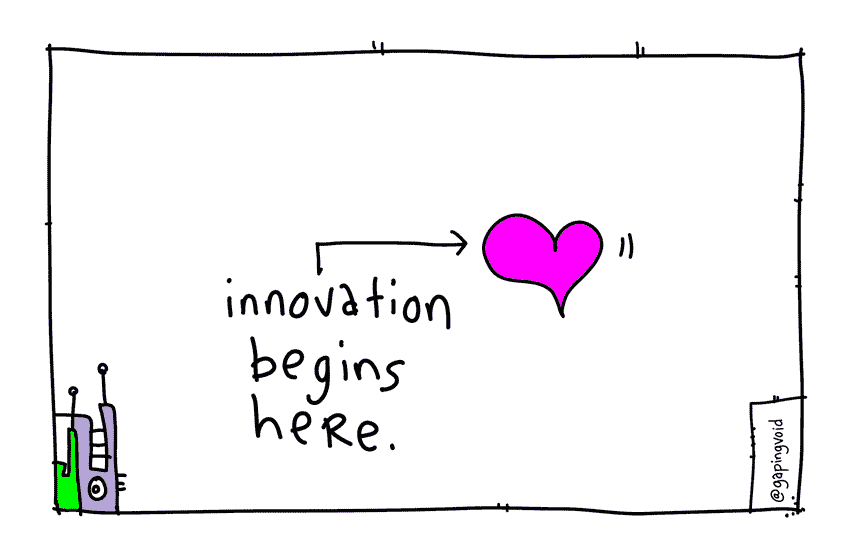 innovation
begins
here.
@gapingvoid